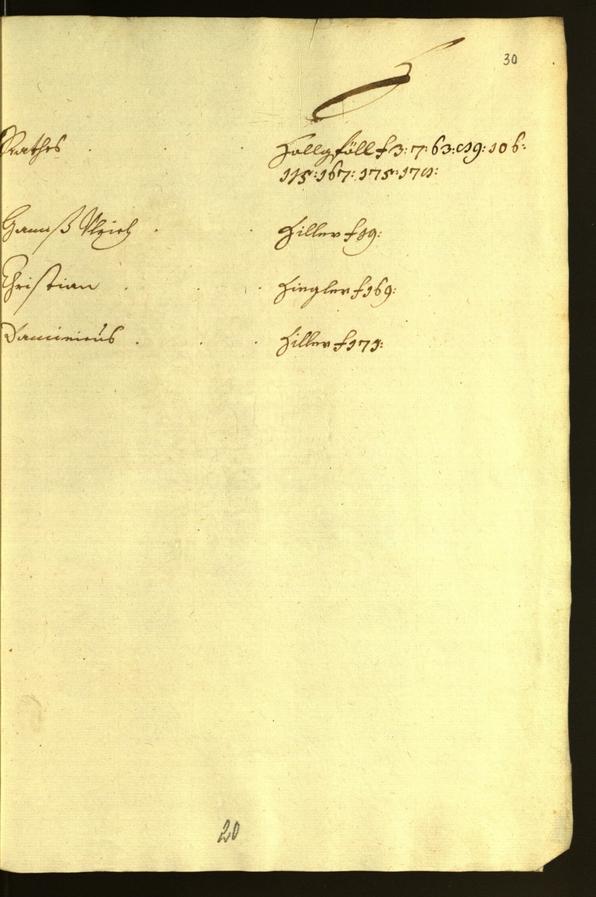 30
Z
Rathes Zollgföll f 3: 7: 63: 106:
115: 167: 175:
Hannß Ulrich Ziller f 19:
Christian Ziegler f 169:
Dominicus Ziller f 171:
20